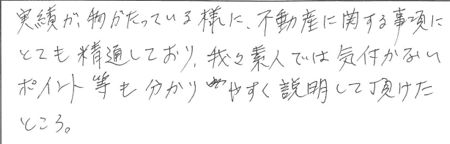 実績が、物がたっている様に、不動産に関する事項に
とても精通しており、我々素人では気付かない
ポイント等も分かりやすく説明して頂けた
ところ。